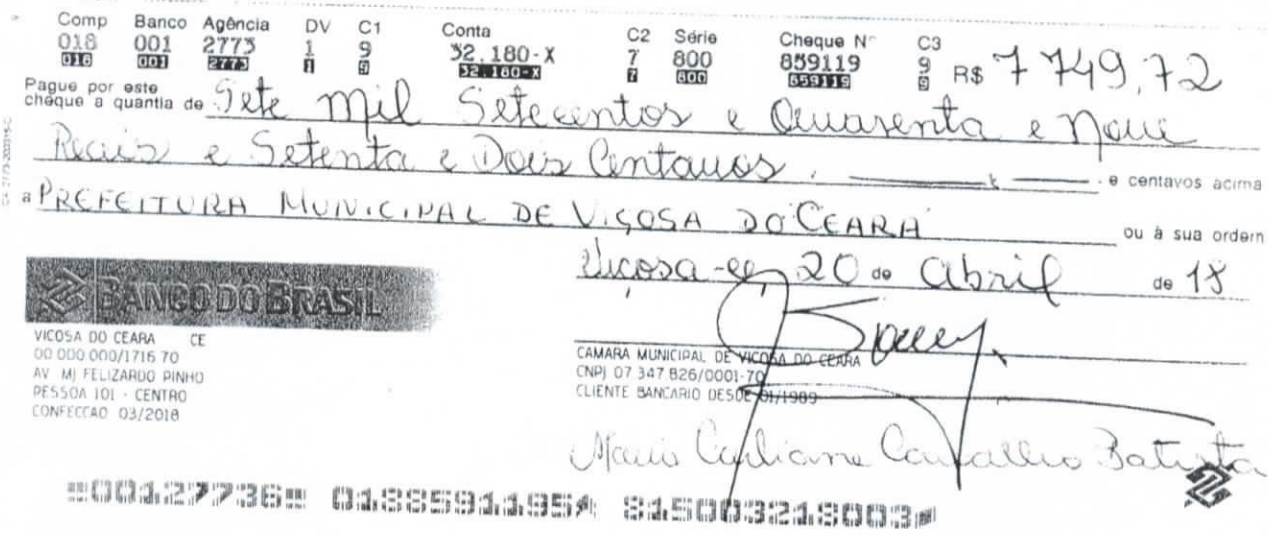 Comp Banco Agência DV C1 Conta C2 Série Cheque Nº C3
018 001 2773 1 9 32.180-X 7 800 859119 9 R$ 7 749,72
018 001 2773 1 9 32.180-X 7 800 859119 9
Pague por este
cheque a quantia de Sete mil Setecentos e Quarenta e Nove
Reais e Setenta e Dois Centavos. e centavos acima
a PREFEITURA MUNICIPAL DE VIÇOSA DO CEARÁ ou à sua ordem
Viçosa-ce, 20 de Abril de 18
BANCO DO BRASIL
VICOSA DO CEARA CE
00 000 000/1716 70
AV MJ FELIZARDO PINHO
PESSOA 101 - CENTRO
CONFECCAO 03/2018
CAMARA MUNICIPAL DE VICOSA DO CEARA
CNPJ 07 347 826/0001-70
CLIENTE BANCARIO DESDE 01/1989
Maria Carliane Carvalho Batista
00127736 0188591195 815003218003